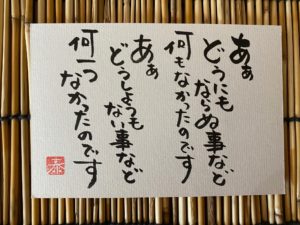 あぁ
どうにも
ならぬ事など
何もなかったのです
あぁ
どうしようも
ない事など
何一つ
なかったのです